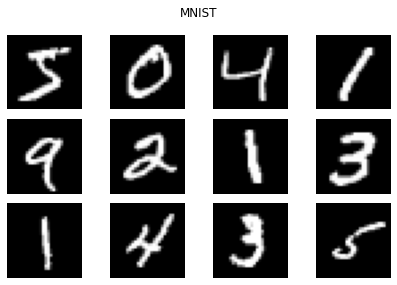 MNIST
5 0 4 1
9 2 1 3
1 4 3 5